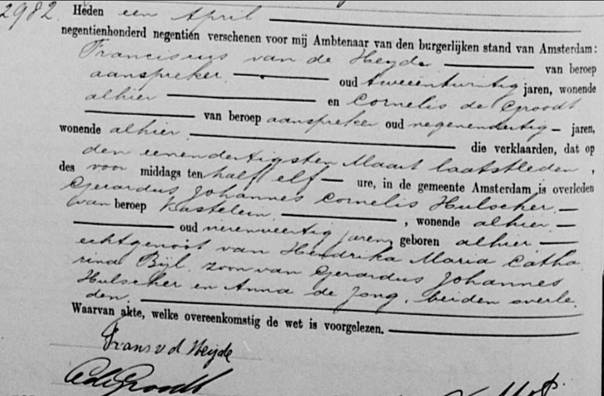 2982. Heden een April
negentienhonderd negentien verschenen voor mij Ambtenaar van den burgerlijken stand van Amsterdam:
Franciscus van de Heyde van beroep
aanspreker. oud tweeentwintig jaren, wonende
alhier en Cornelis de Groodt
van beroep aanspreker oud negenendertig jaren,
wonende alhier. die verklaarden, dat op
den eenendertigsten Maart laatstleden,
des voor middags ten half elf ure, in de gemeente Amsterdam is overleden
Gerardus Johannes Cornelis Hulscher.
van beroep kastelein, wonende alhier.
oud vierenveertig jaren, geboren alhier.
echtgenoot van Hendrika Maria Catha
rina Bijl, zoon van Gerardus Johannes
Hulscher en Anna de Jong, beiden overle
den.
Waarvan akte, welke overeenkomstig de wet is voorgelezen.
Frans v d Heyde
C de Groodt